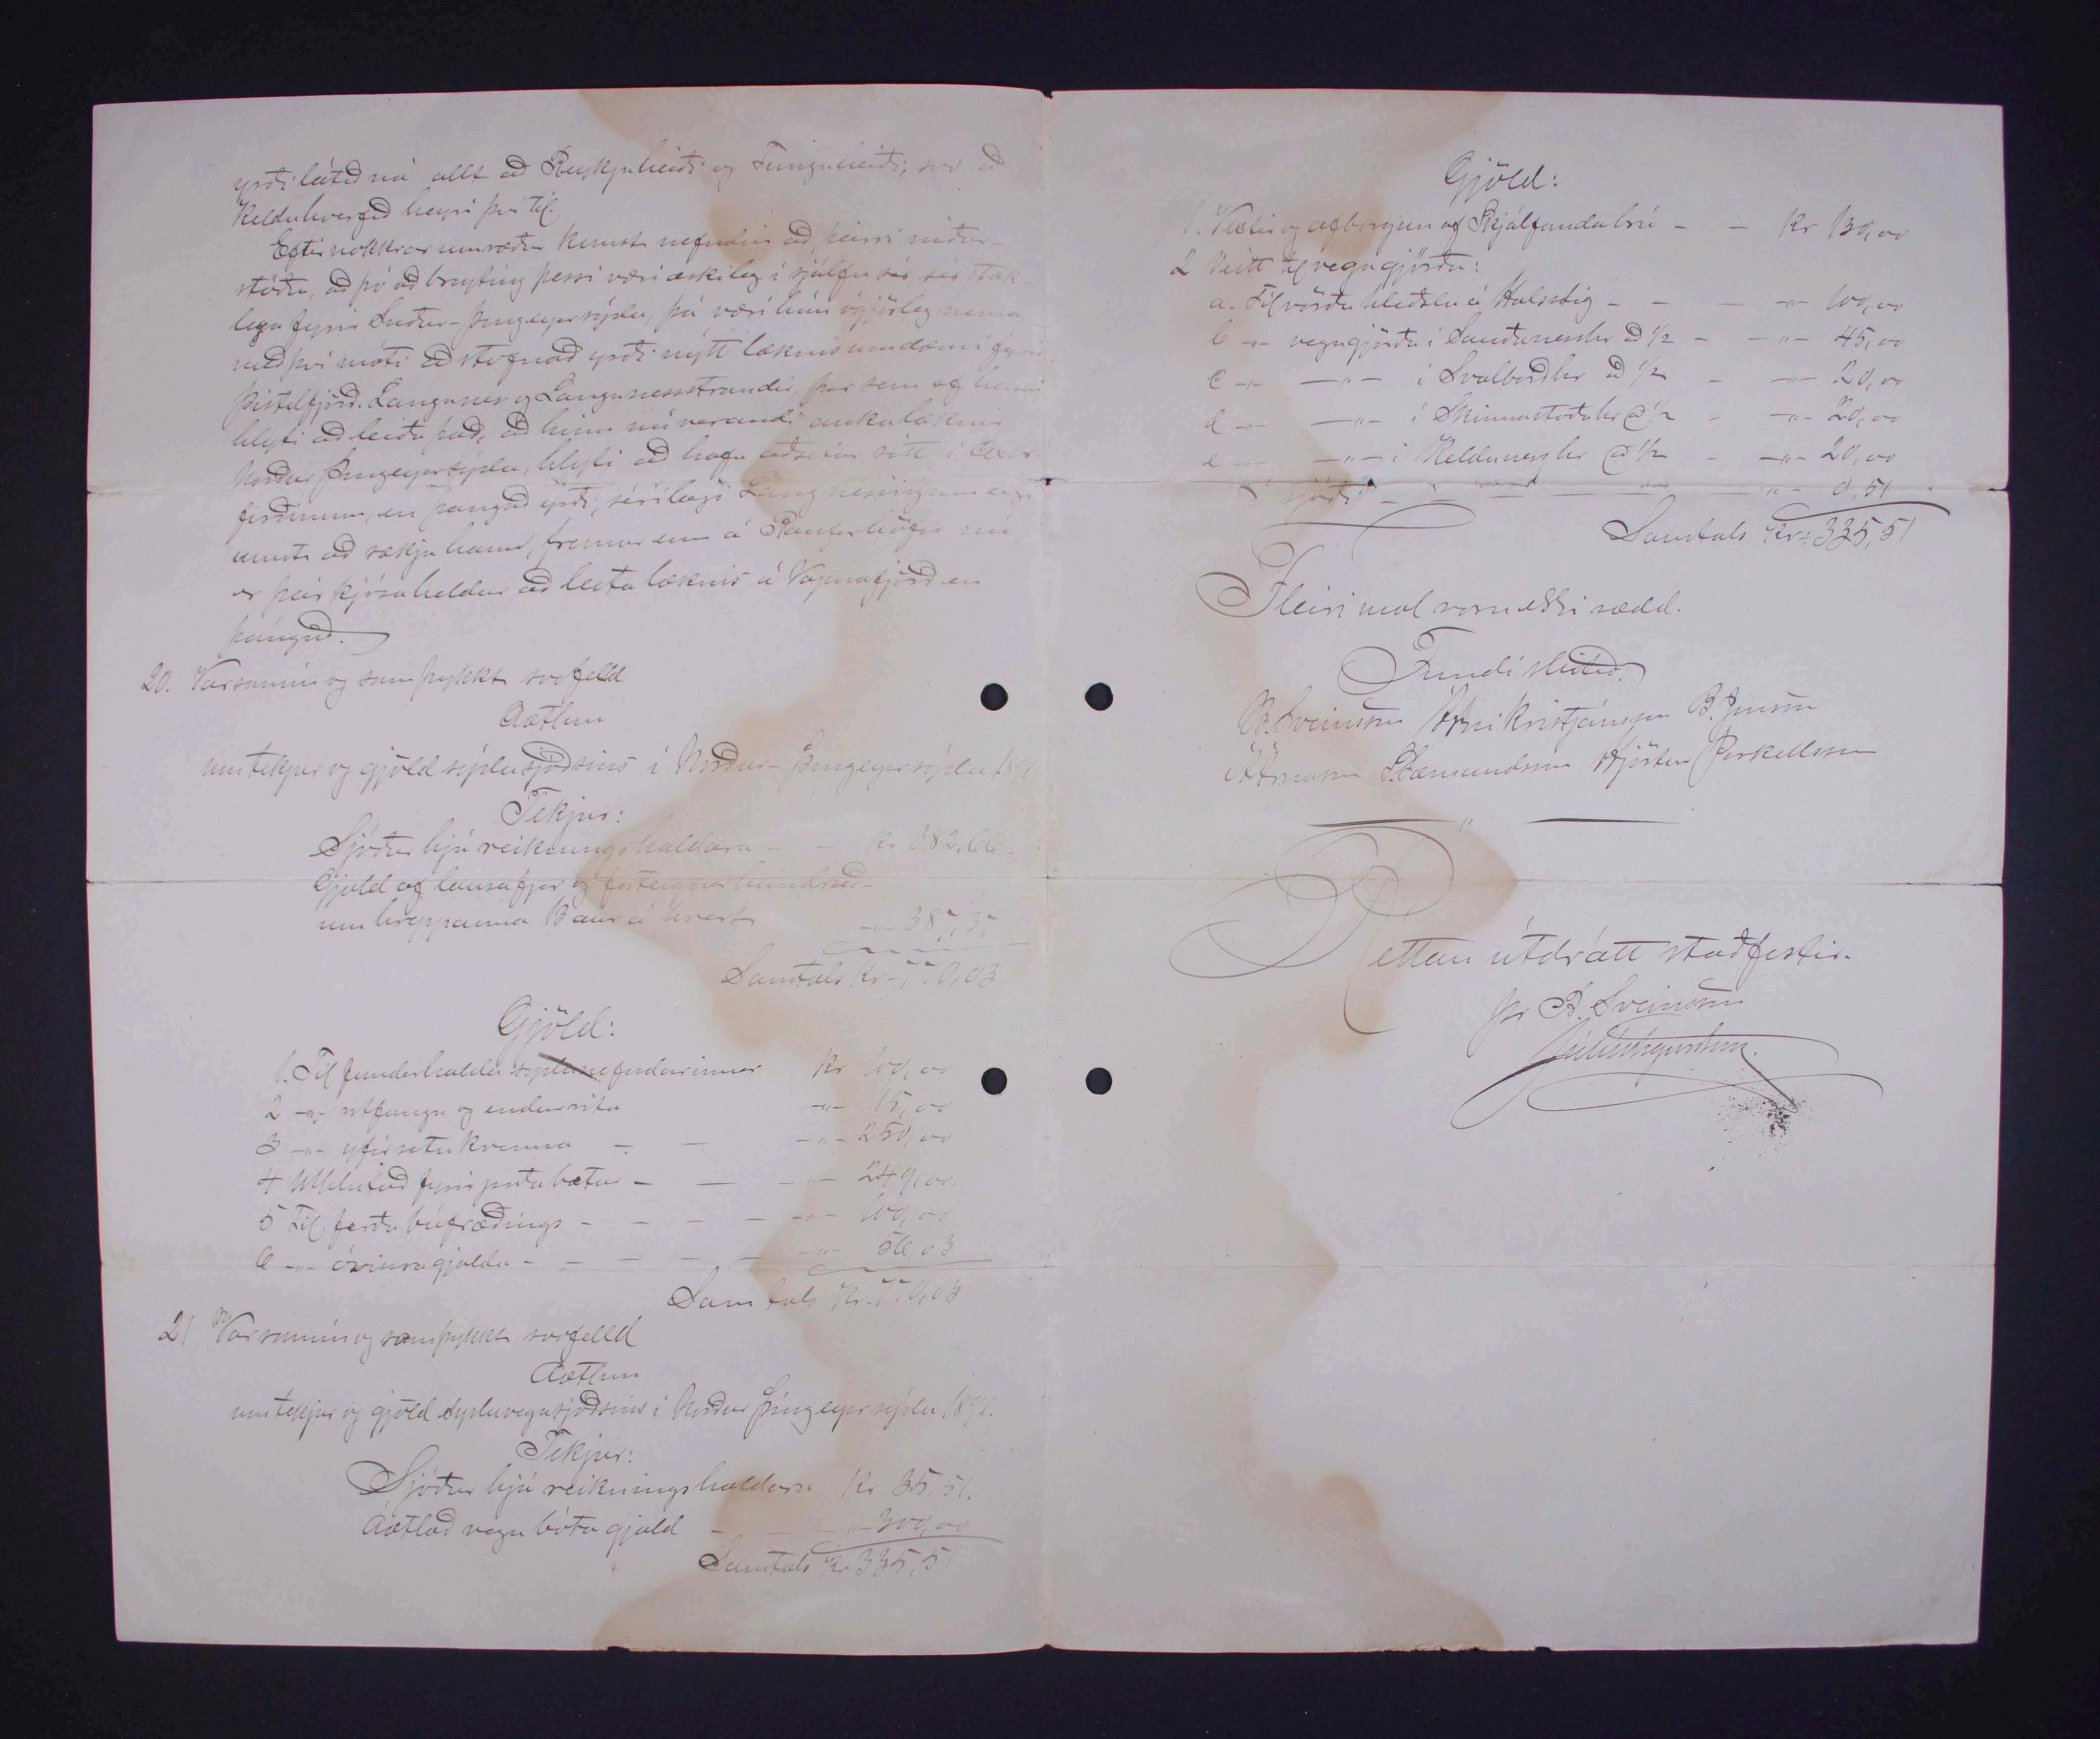 yrði látið ná allt að Reykjaheiði og Tunguheiði, svo að
Kelduhverfið heyri því til.
Eptir nokkrar umræður komst nefndin að þeirri niður-
stöðu, að þó að breyting þessi væri æskileg í sjálfu sér, sér stak-
lega fyrir Suður-Þingeyjarsýslu, þá væri hún ógjörleg nema
með því móti að stofnað yrði nýtt læknisumdæmi fyrir
Þistilfjörð, Langanes og Langanesstrandir, þar sem af henni
hlyti að leiða það, að hinn núverandi aukalæknir
Norður Þingeyjarsýslu, hlyti að hafa aðsetur sitt í Axar-
firðinum, en þangað yrði, sér í lagi Langnesingum eigi
unnt að sækja hann, fremur enn á Raufarhöfn nú
er þeir kjósa heldur að leita læknis á Vopnafjörð en
þángað.
20. Var samin og samþykkt svofeld
Áætlun
um tekjur og gjöld sýslusjóðsins í Norður-Þingeyjarsýslu 1891
Tekjur:
Sjóður hjá reikningshaldara - - kr 382,66.
Gjald af lausafjár og fasteignar hundruð-
um hreppanna 13 aur á hvert -"- 387,37
Samtals kr- 770,03
Gjöld:
1. Til fundarhalda sýslunefndarinnar kr 100,00
2 -"- ritfanga og endurrita -"- 15,00
3 -"- yfirsetukvenna - - -"- 250,00
4 Úthlutað fyrir jarðabætur - - -"- 249,00
5 Til ferða búfræðings - - - - -"- 100,00
6 -"- óvissra gjalda - - - - -"- 56,03
Samtals kr- 770,03
21 Var samin og samþykkt svofelld
Áætlun
um tekjur og gjöld sýsluvegasjóðsins í Norður Þingeyjarsýslu 1891.
Tekjur:
Sjóður hjá reikningshaldara kr 35,51.
Áætlað vegabótagjald - - -"- 300,00
Samtals kr 335,51
Gjöld:
1. Vextir og afborgun af Skjálfandabrú - - kr 130,00
2 Veitt til vegagjörða:
a. Til vörðuhleðslu á Hálsstig - - - -"- 100,00
b -"- vegagjörða í Sauðaneshr að 1/2 - -"- 45,00
c -"- -"- í Svalbarðshr að 1/2 - -"- 20,00
d -"- -"- í Skinnastaðahr @ 1/2 - -"- 20,00
e -"- -"- í Kelduneshr @ 1/2 - -"- 20,00
Í sjóði - - - - -"- 0,51
Samtals kr: 335,51
Fleiri mál voru ekki rædd.
Fundi slitið.
B. Sveinsson Árni Kristjánsson B. Jónsson
Á Árnason S. Sæmundsson Hjörtur Þorkellsson
"
Réttan útdrátt staðfestir.
pr B. Sveinsson
Júl. Sigurðsson.